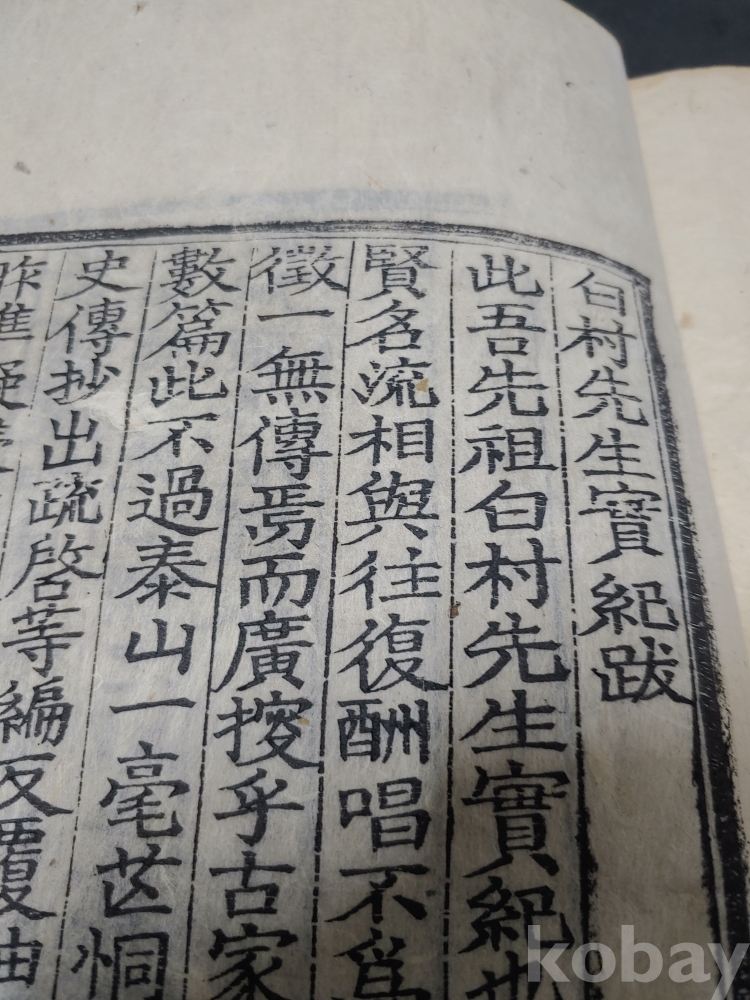 白村先生實紀跋
此吾先祖白村先生實紀也
賢名流相與往復酬唱不爲
徵一無傳焉而廣搜乎古家
數篇此不過泰山一毫芒恫
史傳抄出疏啓等編反覆紬
昨進疑
kobay